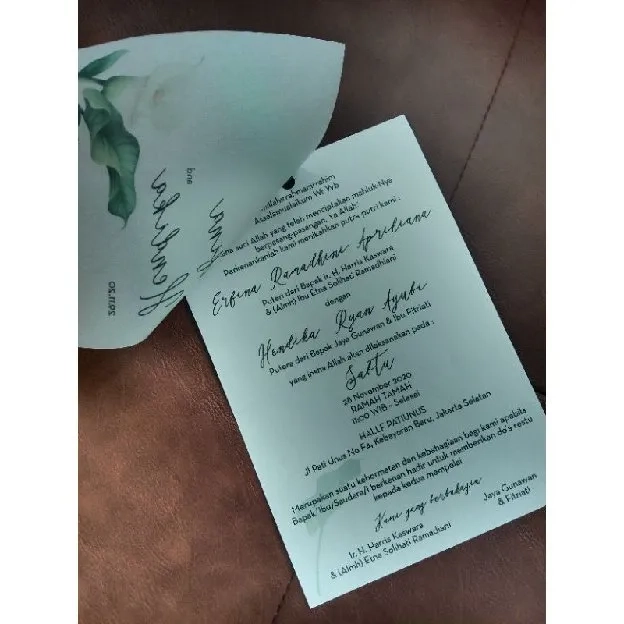 Assalamualaikum Wr Wb
suci Allah yang telah menciptakan mahluk Nya
berpasang-pasangan, Ya Allah
Perkenankanlah kami menikahkan putra putri kami :
Erfina Ramadhini Apriliana
Puteri dari Bapak Ir. H. Harris Kaswara
& (Almh) Ibu Etna Solihati Ramadhiani
dengan
Hendika Ryan Ayubi
Putera dari Bapak Jaya Gunawan & Ibu Fitriati
yang insha Allah akan dilaksanakan pada :
Sabtu
28 November 2020
RAMAH TAMAH
11:00 WIB - Selesai
HALLF PATIUNUS
Jl Pati Unus No.FA, Kebayoran Baru, Jakarta Selatan
Merupakan suatu kehormatan dan kebahagiaan bagi kami apabila
Bapak/Ibu/Saudara/i berkenan hadir untuk memberikan do'a restu
kepada kedua mempelai
Kami yang berbahagia
Ir. H. Harris Kaswara
& (Almh) Etna Solihati Ramadiani
Jaya Gunawan
& Fitriati
and
Hendika